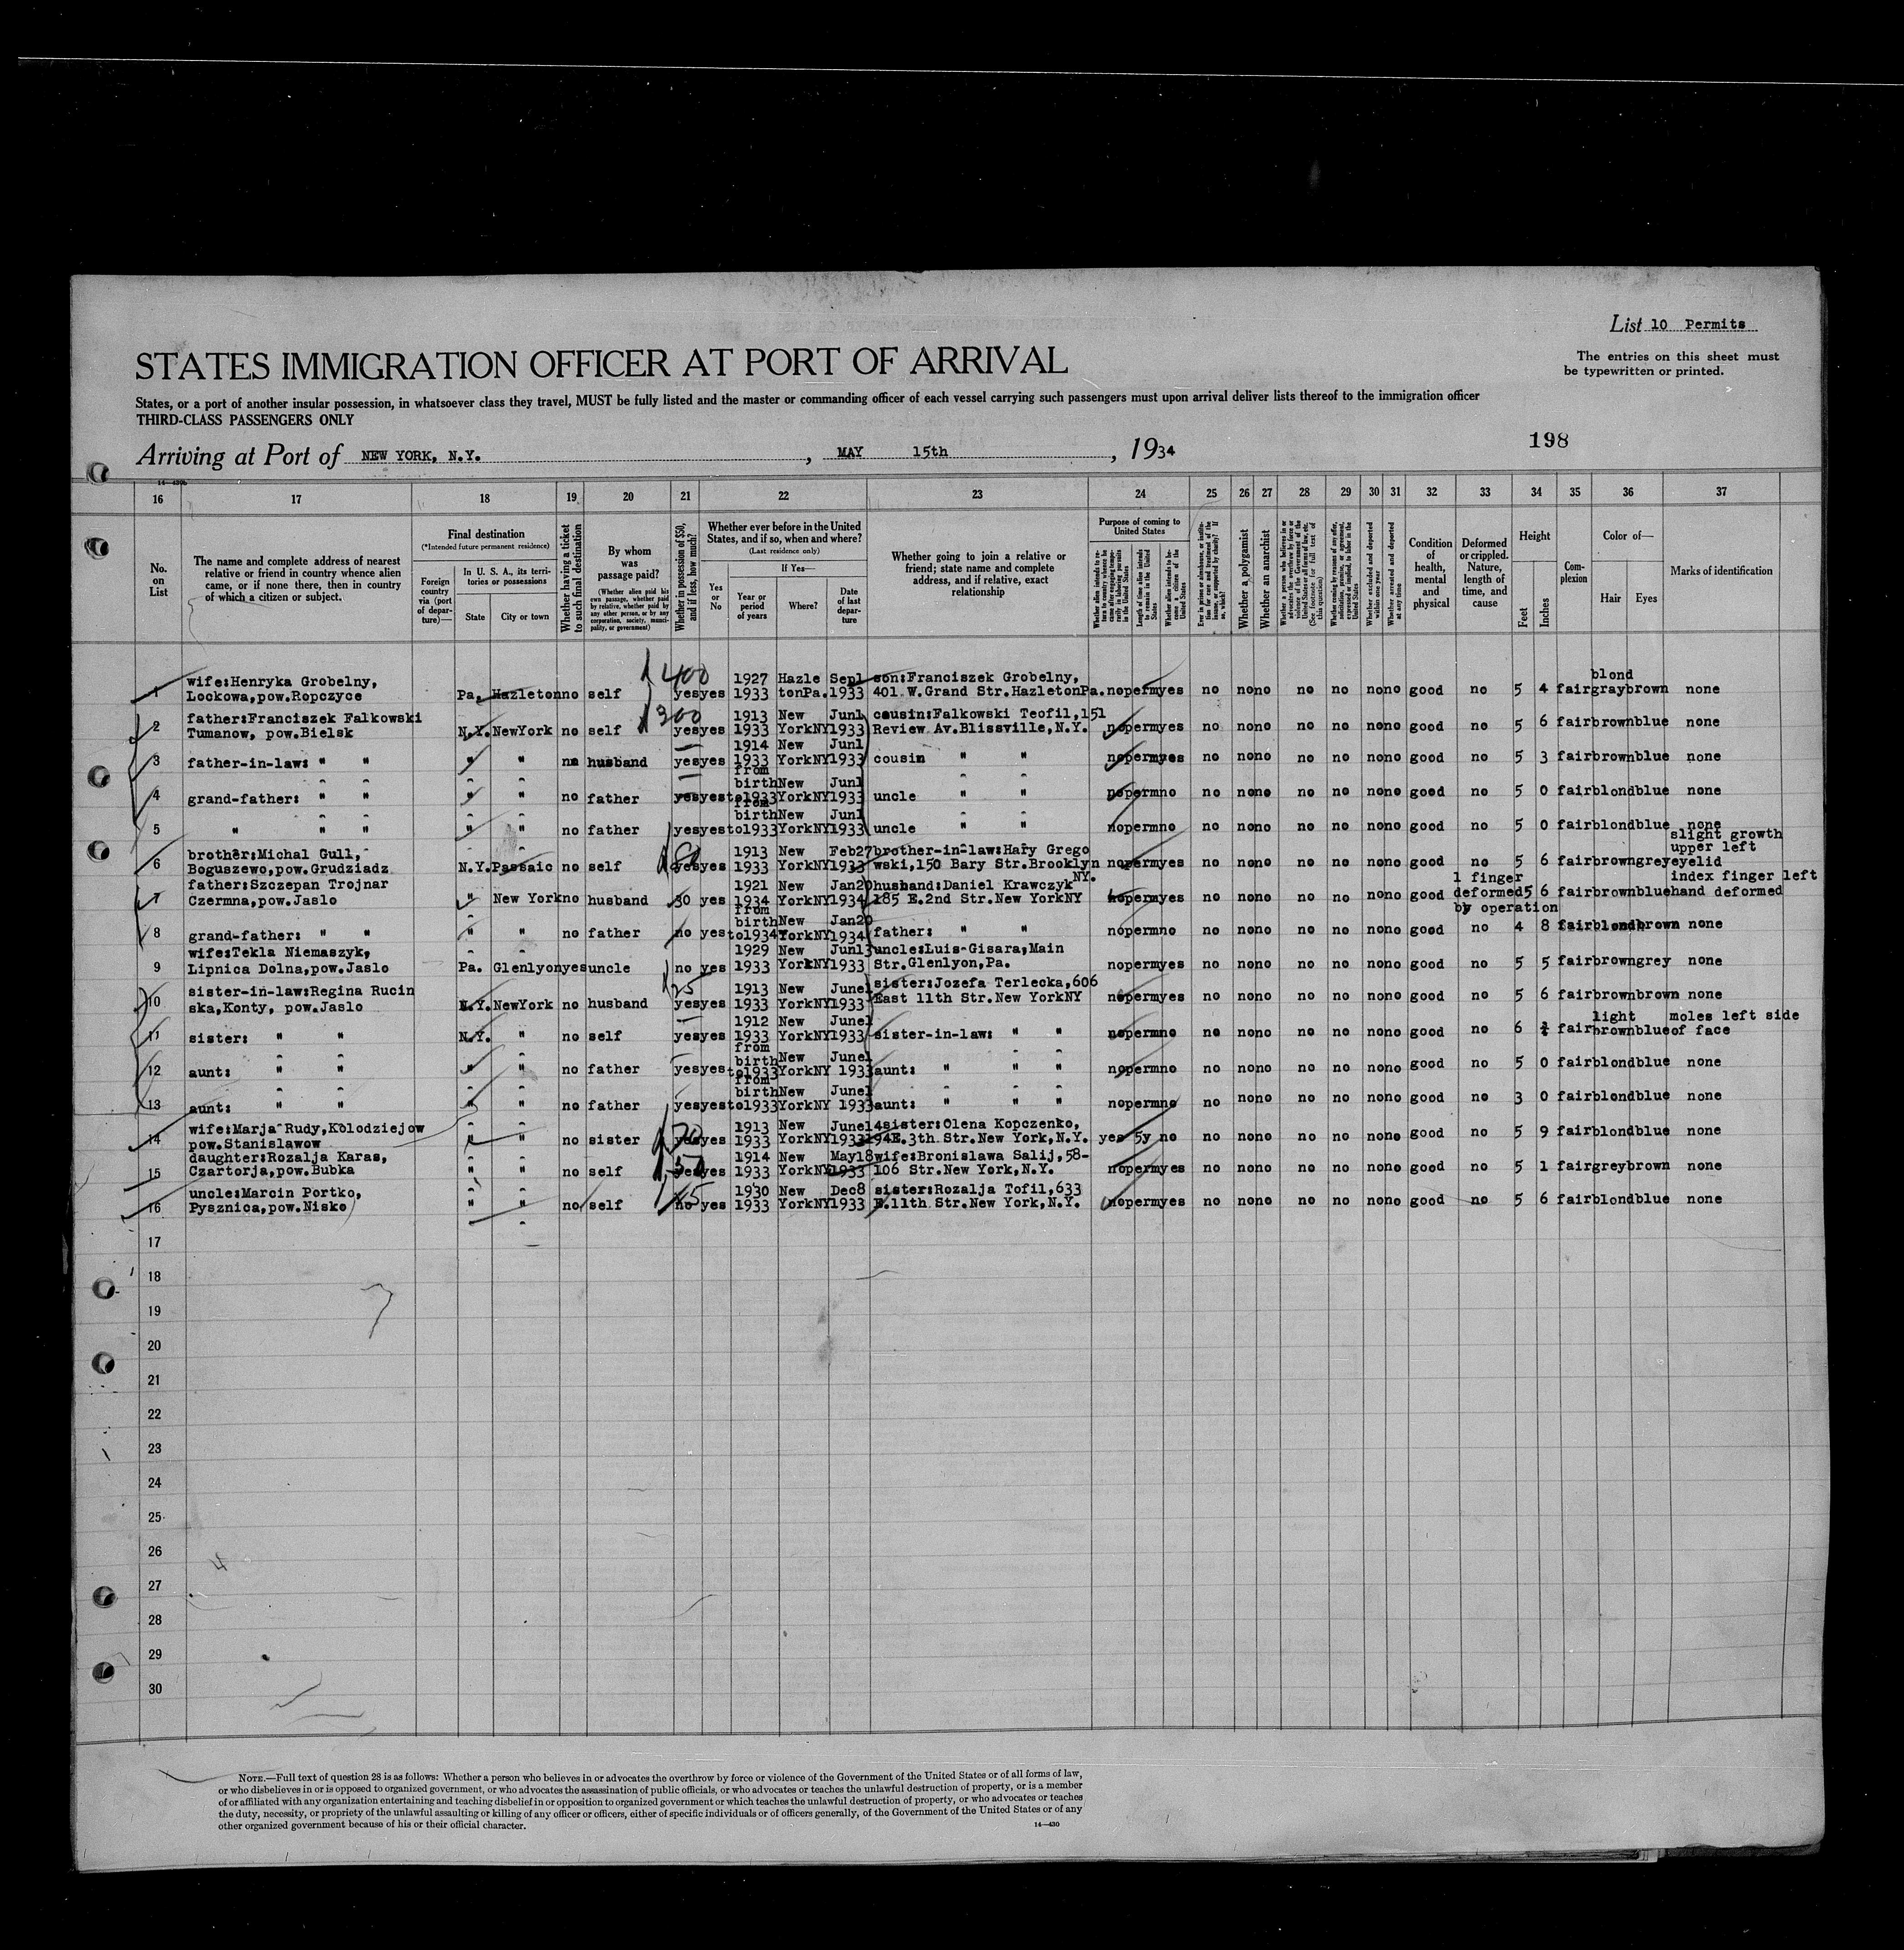 List 10 Permits
STATES IMMIGRATION OFFICER AT PORT OF ARRIVAL
The entries on this sheet must
be typewritten or printed.
States, or a port of another insular possession, in whatsoever class they travel, MUST be fully listed and the master or commanding officer of each vessel carrying such passengers must upon arrival deliver lists thereof to the immigration officer
THIRD-CLASS PASSENGERS ONLY
198
Arriving at Port of NEW YORK, N.Y. , MAY 15th , 1934
16 17 18 19 20 21 22 23 24 25 26 27 28 29 30 31 32 33 34 35 36 37
No. on List
The name and complete address of nearest relative or friend in country whence alien came, or if none there, then in country of which a citizen or subject.
Final destination
(*Intended future permanent residence)
Foreign country via (port of departure)—
In U. S. A., its territories or possessions
State
City or town
Whether having a ticket to such final destination
By whom was passage paid?
(Whether alien paid his own passage, whether paid by relative, whether paid by any other person, or by any corporation, society, municipality, or government)
Whether in possession of $50, and if less, how much?
Whether ever before in the United States, and if so, when and where?
(Last residence only)
Yes or No
If Yes—
Year or period of years
Where?
Date of last departure
Whether going to join a relative or friend; state name and complete address, and if relative, exact relationship
Purpose of coming to United States
Whether a polygamist
Whether an anarchist
Whether excluded and deported within one year
Whether arrested and deported at any time
Condition of health, mental and physical
Deformed or crippled. Nature, length of time, and cause
Height
Feet
Inches
Complexion
Color of—
Hair
Eyes
Marks of identification
400
wife:Henryka Grobelny, 1927 Hazle Sep1 son:Franciszek Grobelny, blond
1 Lockowa,pow.Ropczyce Pa. Hazleton no self yes yes 1933 tonPa. 1933 401 W.Grand Str.HazletonPa. no perm yes no no no no no no no good no 5 4 fair gray brown none
300
father:Franciszek Falkowski 1913 New Jun1 cousin:Falkowski Teofil,151
2 Tumanow, pow.Bielsk N.Y. NewYork no self yes yes 1933 YorkNY 1933 Review Av.Blissville,N.Y. no perm yes no no no no no no no good no 5 6 fair brown blue none
1914 New Jun1
3 father-in-law: " " " " husband yes yes 1933 YorkNY 1933 cousin " " no perm yes no no no no no no no good no 5 3 fair brown blue none
from
birth New Jun1
4 grand-father: " " " " no father yes yes to1933 YorkNY 1933 uncle " " no perm no no no no no no no no good no 5 0 fair blond blue none
from
birth New Jun1
5 " " " " " no father yes yes to1933 YorkNY 1933 uncle " " no perm no no no no no no no no good no 5 0 fair blond blue none
slight growth
upper left
brother:Michal Gull, 1913 New Feb27 brother-in-law:Hary Grego
6 Boguszewo,pow.Grudziadz N.Y. Passaic no self yes yes 1933 YorkNY 1933 wski,150 Bary Str.Brooklyn no perm yes no no no no no no no good no 5 6 fair brown grey eyelid
NY. 1 finger index finger left
father:Szczepan Trojnar 1921 New Jan20 husband:Daniel Krawczyk
7 Czermna,pow.Jaslo " New York no husband 30 yes 1934 YorkNY 1934 185 E.2nd Str.New YorkNY no perm yes no no no no no no no good deformed 5 6 fair brown blue hand deformed
by operation
from
birth New Jan20
8 grand-father: " " " " no father no yes to1934 YorkNY 1934 father: " " no perm no no no no no no no no good no 4 8 fair blond brown none
wife:Tekla Niemaszyk, 1929 New Jun13 uncle:Luis Gisara,Main
9 Lipnica Dolna,pow.Jaslo Pa. Glenlyon yes uncle no yes 1933 YorkNY 1933 Str.Glenlyon,Pa. no perm yes no no no no no no no good no 5 5 fair brown grey none
25
sister-in-law:Regina Rucin 1913 New June1 sister:Jozefa Terlecka,606
10 ska,Konty, pow.Jaslo N.Y. NewYork no husband yes yes 1933 YorkNY 1933 East 11th Str.New YorkNY no perm yes no no no no no no no good no 5 6 fair brown brown none
1912 New June1 light moles left side
11 sister: " " N.Y. " no self yes yes 1933 YorkNY 1933 sister-in-law: " " no perm no no no no no no no no good no 6 fair brown blue of face
from
birth New June1
12 aunt: " " " " no father yes yes to1933 YorkNY 1933 aunt: " " " no perm no no no no no no no no good no 5 0 fair blond blue none
from
birth New June1
13 aunt: " " " " no father yes yes to1933 YorkNY 1933 aunt: " " " no perm no no no no no no no no good no 3 0 fair blond blue none
wife:Marja Rudy,Kolodziejow 1913 New June14 sister:Olena Kopczenko,
14 pow.Stanislawow " " no sister yes yes 1933 YorkNY 1933 194E.3th Str.New York,N.Y. yes 5y no no no no no no no no good no 5 9 fair blond blue none
daughter:Rozalja Karas, 1914 New May18 wife:Bronislawa Salij,58-
15 Czartorja,pow.Bubka " " no self yes yes 1933 YorkNY 1933 106 Str.New York,N.Y. no perm yes no no no no no no no good no 5 1 fair grey brown none
uncle:Marcin Portko, 1930 New Dec8 sister:Rozalja Tofil,633
16 Pysznica,pow.Nisko " " no self no yes 1933 YorkNY 1933 E.11th Str.New York,N.Y. no perm yes no no no no no no no good no 5 6 fair blond blue none
17
18
19
20
21
22
23
24
25
26
27
28
29
30
NOTE.—Full text of question 28 is as follows: Whether a person who believes in or advocates the overthrow by force or violence of the Government of the United States or of all forms of law,
or who disbelieves in or is opposed to organized government, or who advocates the assassination of public officials, or who advocates or teaches the unlawful destruction of property, or is a member
of or affiliated with any organization entertaining and teaching disbelief in or opposition to organized government or which teaches the unlawful destruction of property, or who advocates or teaches
the duty, necessity, or propriety of the unlawful assaulting or killing of any officer or officers, either of specific individuals or of officers generally, of the Government of the United States or of any
other organized government because of his or their official character.
14—430